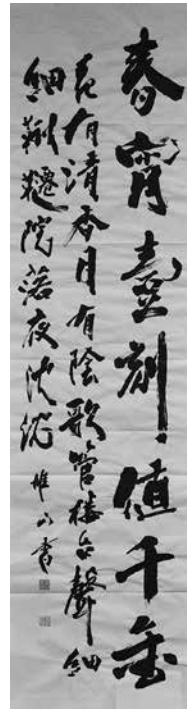 春宵壹刻値千金
花有清香月有陰歌管楼台聲細
細鞦韆院落夜沈沈
惟山書